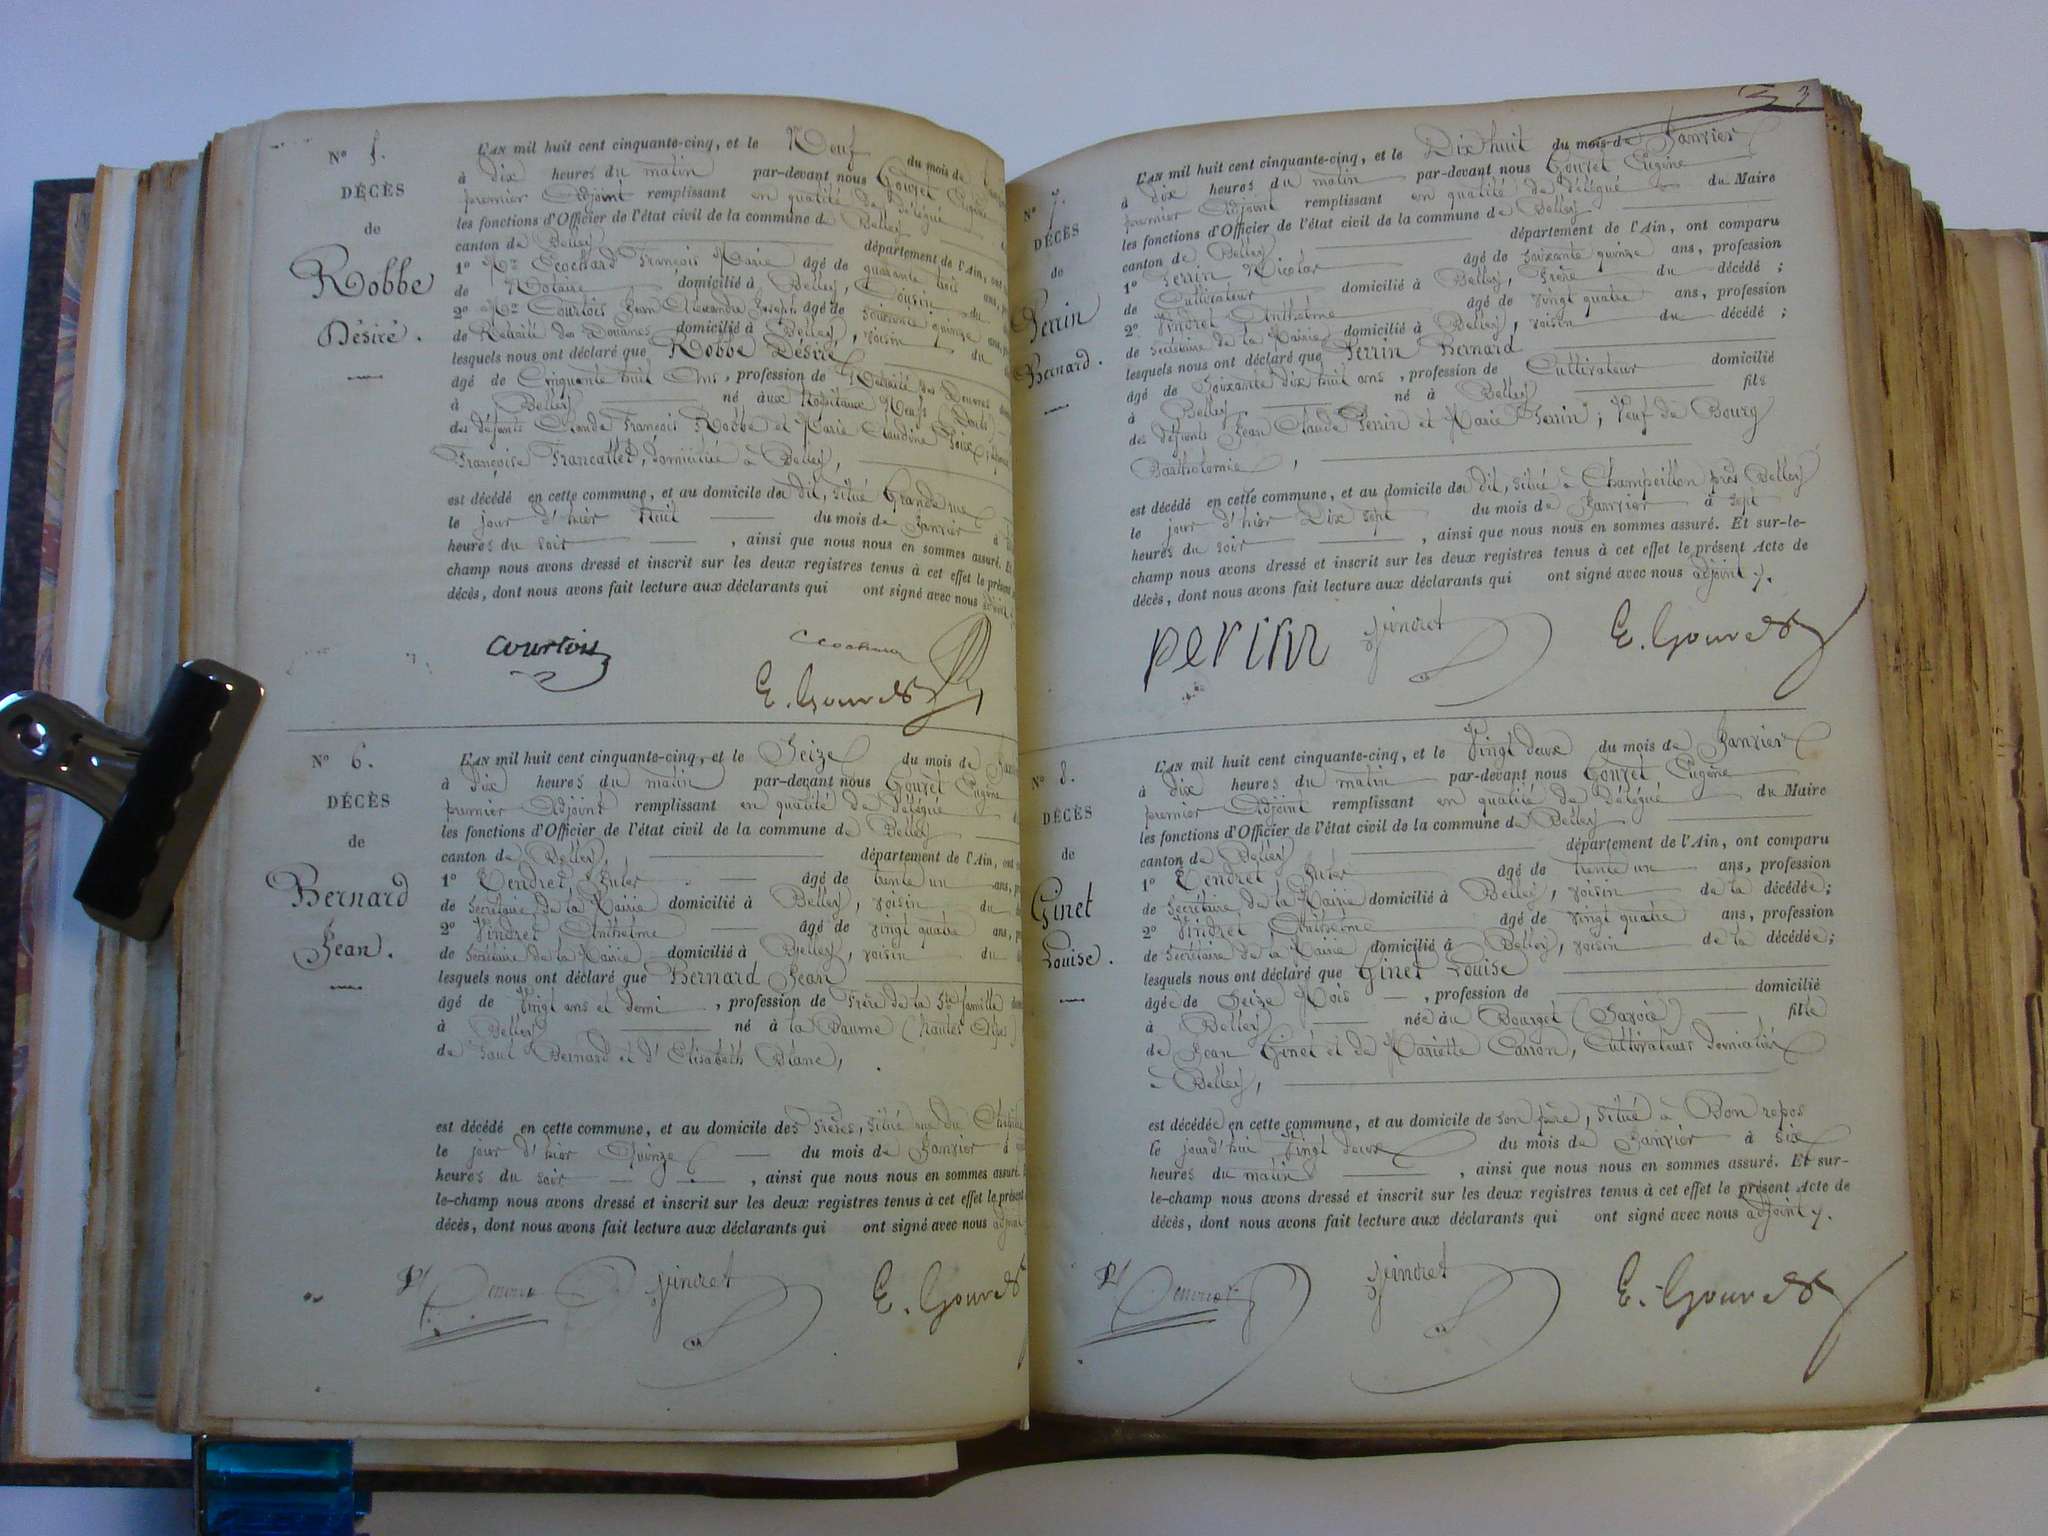 N° 5.
DÉCÈS
de
Robbe
Désiré.
L'AN mil huit cent cinquante-cinq, et le Neuf du mois de
à dix heures du matin par-devant nous Gouvet Eugène
premier Adjoint remplissant en qualité de délégué
les fonctions d'Officier de l'état civil de la commune de Belley
canton de Belley département de l'Ain, ont
1° Mr Cochard François Marie âgé de quarante huit ans,
de Notaire domicilié à Belley, Cousin du
2° Mr Courtois Jean Alexandre Joseph âgé de soixante quinze ans,
de Retraité des Douanes domicilié à Belley, voisin du
lesquels nous ont déclaré que Robbe Désiré
âgé de Cinquante huit Ans, profession de Retraité des Douanes
à Belley né aux hopitaux Neufs (Doubs)
des défunts Claude François Robbe et Marie Claudine
Françoise Francallet, domiciliée à Belley,
est décédé en cette commune, et au domicile du dit, situé Grande rue
le jour d'hier Huit du mois de Janvier à
heures du soir, ainsi que nous nous en sommes assuré. Et
champ nous avons dressé et inscrit sur les deux registres tenus à cet effet le présent
décès, dont nous avons fait lecture aux déclarants qui ont signé avec nous adjoint
Courtois
E. Gouvet
N° 6.
DÉCÈS
de
Bernard
Jean.
L'AN mil huit cent cinquante-cinq, et le Seize du mois de
à dix heures du matin par-devant nous Gouvet Eugène
premier Adjoint remplissant en qualité de délégué
les fonctions d'Officier de l'état civil de la commune de Belley
canton de Belley, département de l'Ain, ont
1° Vendret, Jules âgé de trente un ans,
de Secrétaire de la Mairie domicilié à Belley, voisin du
2° Vindret Anthelme âgé de vingt quatre ans,
de Secrétaire de la Mairie domicilié à Belley, voisin du
lesquels nous ont déclaré que Bernard Jean
âgé de Vingt ans et demi, profession de Frère de la Ste famille
à Belley né à la Baume (hautes Alpes)
de Paul Bernard et d'Elisabeth Blanc,
est décédé en cette commune, et au domicile des frères, situé rue du
le jour d'hier Quinze du mois de Janvier à
heures du soir, ainsi que nous nous en sommes assuré.
le-champ nous avons dressé et inscrit sur les deux registres tenus à cet effet le présent
décès, dont nous avons fait lecture aux déclarants qui ont signé avec nous adjoint
Vindret
E. Gouvet
3
N° 7.
DÉCÈS
de
Perrin
Bernard.
L'AN mil huit cent cinquante-cinq, et le Dix huit du mois de Janvier
à dix heures du matin par-devant nous Gouvet Eugène
premier Adjoint remplissant en qualité de délégué du Maire
les fonctions d'Officier de l'état civil de la commune de Belley
canton de Belley département de l'Ain, ont comparu
1° Perrin Nicolas âgé de soixante quinze ans, profession
de Cultivateur domicilié à Belley, Frère du décédé ;
2° Vindret Anthelme âgé de vingt quatre ans, profession
de Secrétaire de la Mairie domicilié à Belley, voisin du décédé ;
lesquels nous ont déclaré que Perrin Bernard
âgé de Soixante dix huit ans, profession de Cultivateur domicilié
à Belley né à Belley fils
des défunts Jean Claude Perrin et Marie Perrin ; Veuf de Bourg
Bartholomie,
est décédé en cette commune, et au domicile du dit, situé à Champeillon près Belley
le jour d'hier Dix sept du mois de Janvier à sept
heures du soir, ainsi que nous nous en sommes assuré. Et sur-le-
champ nous avons dressé et inscrit sur les deux registres tenus à cet effet le présent Acte de
décès, dont nous avons fait lecture aux déclarants qui ont signé avec nous adjoint.
perrin Vindret E. Gouvet
N° 8.
DÉCÈS
de
Ginet
Louise.
L'AN mil huit cent cinquante-cinq, et le Vingt deux du mois de Janvier
à dix heures du matin par-devant nous Gouvet Eugène
premier Adjoint remplissant en qualité de délégué du Maire
les fonctions d'Officier de l'état civil de la commune de Belley
canton de Belley département de l'Ain, ont comparu
1° Vendret Jules âgé de trente un ans, profession
de Secrétaire de la Mairie domicilié à Belley, voisin de la décédée ;
2° Vindret, Anthelme âgé de vingt quatre ans, profession
de Secrétaire de la Mairie domicilié à Belley, voisin de la décédée ;
lesquels nous ont déclaré que Ginet Louise
âgée de Seize Mois, profession de domicilié
à Belley née au Bourget (Savoie) fille
de Jean Ginet et de Mariette Carron, Cultivateurs domiciliés
à Belley,
est décédée en cette commune, et au domicile de son père, situé à Bon repos
le jourd'hui Vingt deux du mois de Janvier à six
heures du matin, ainsi que nous nous en sommes assuré. Et sur-
le-champ nous avons dressé et inscrit sur les deux registres tenus à cet effet le présent Acte de
décès, dont nous avons fait lecture aux déclarants qui ont signé avec nous adjoint.
Vindret E. Gouvet